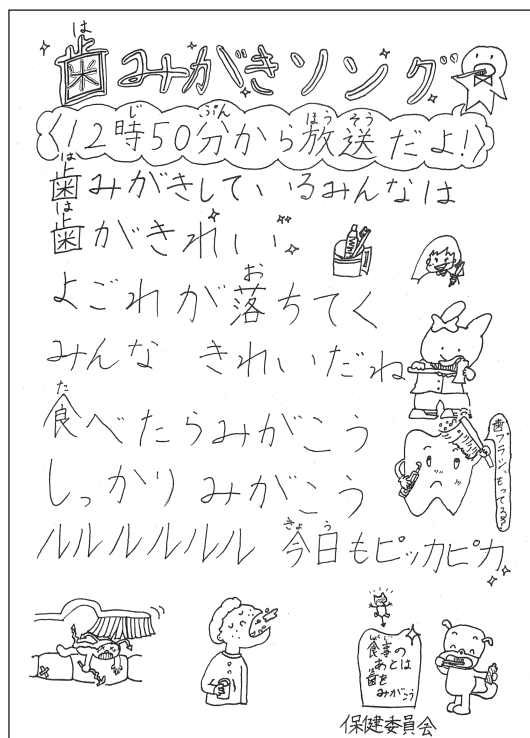 歯みがきソング
12時50分から放送だよ!
歯みがきしているみんなは
歯がきれい
よごれが落ちてく
みんな きれいだね
食べたらみがこう
しっかりみがこう
歯ブラシ、もってる?
ルルルルルル 今日もピッカピカ
食事の
あとは
歯を
みがこう
保健委員会